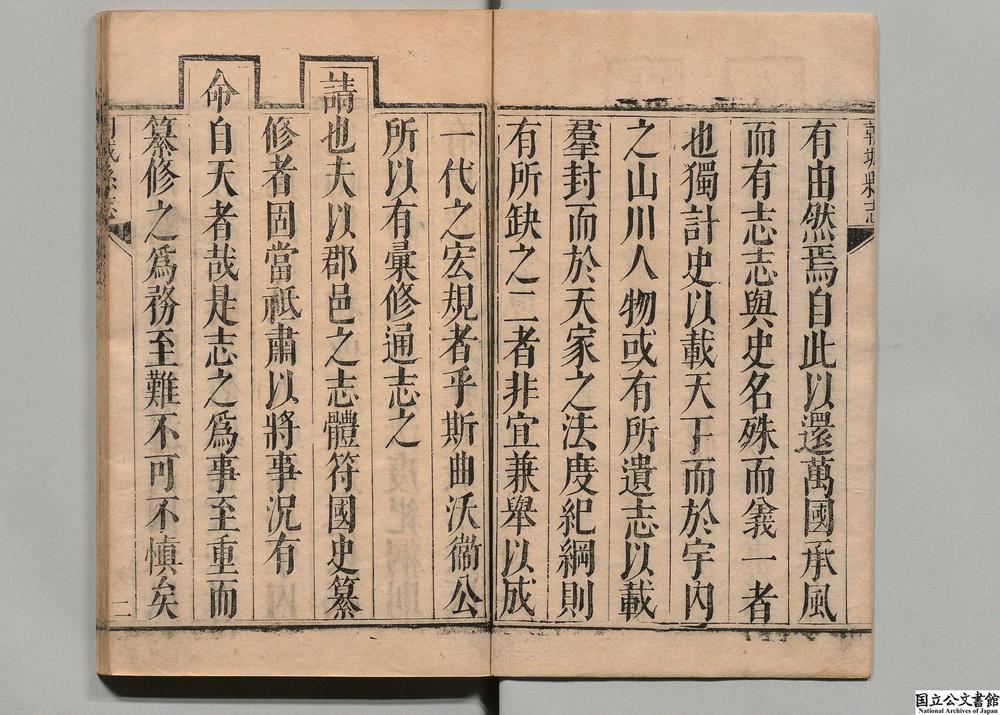 韓城縣志
有由然焉自此以還萬國承風
而有志志與史名殊而義一者
也獨計史以載天下而於宇内
之山川人物或有所遺志以載
羣封而於天家之法度紀綱則
有所缺之二者非宜兼舉以成
一代之宏規者乎斯曲沃衞公
所以有彙修通志之
請也夫以郡邑之志體符國史纂
修者固當祗肅以將事況有
命自天者哉是志之爲事至重而
纂修之爲務至難不可不愼矣
縣志
二
国立公文書館
National Archives of Japan